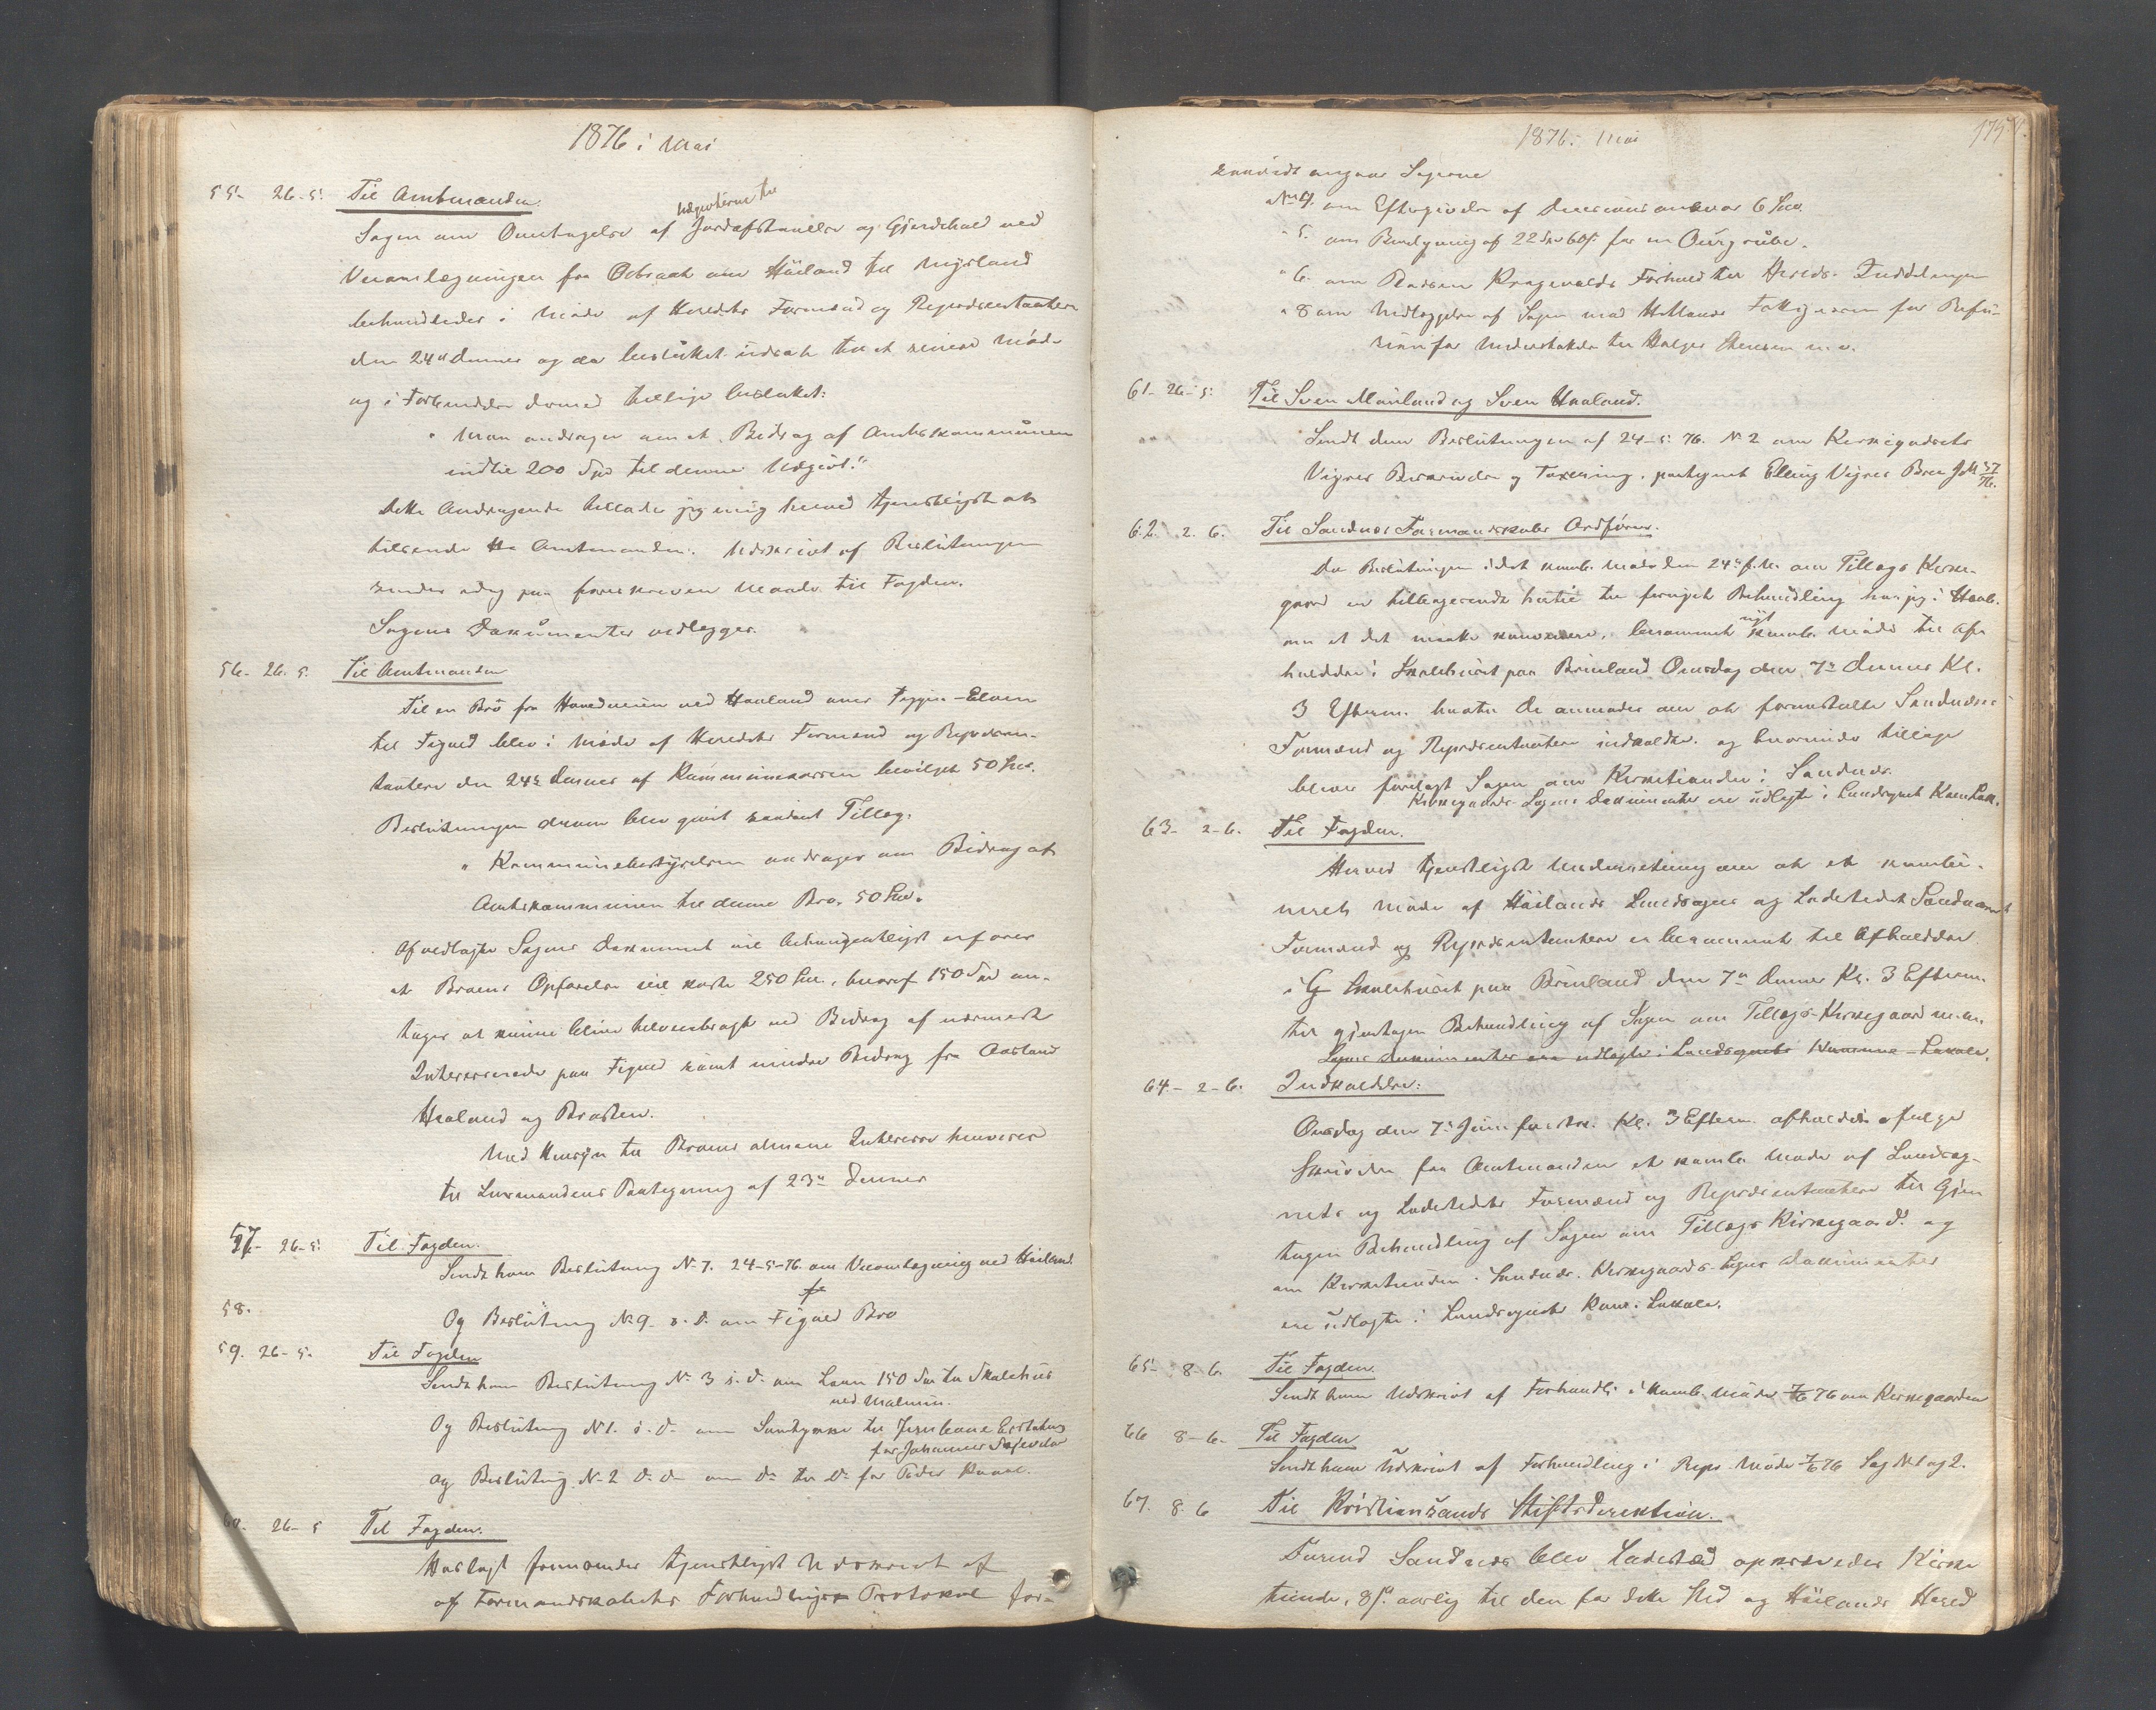 1876 i Mai
55- 26-5. Til Amtmanden.
Udgivterne til
Sagen om Overtagelse af Jordafstaaelse og Gjerdehold ved
Veiomlægningen fra Osbraat om Höiland til Myrland
behandledes i Möde af Heredets Formænd og Repræsentanter
den 24de dennes og da besluttet udsat til et senere Möde
og i Forbindelse dermed tillige besluttet:
" Man andrager om et Bidrag af Amtskommunen
indtil 200 Spd til denne Udgivt."
Dette Andragende tillader jeg mig herved tjenstligst at
tilsende Hr Amtmanden. Udskrivt af Beslutningen
sendes idag paa foreskreven Maade til Fogden.
Sagens Dokumenter vedlægges.
56- 26. 5. Til Amtmanden
Til en Bro fra Hovedveien ved Haaland over Figgen-Elven
til Figved blev i Möde af Heredets Formænd og Repræsen-
tanter den 24de dennes af Kommunekassen bevilget 50 Spd.
Beslutningen derom blev givet saadant Tillæg:
" Kommunebestyrelsen andrager om Bidrag af
Amtskommunen til denne Bro. 50 Spd.
Af vedlagte Sagens Dokument vil behageligst erfares
at Broens Opförelse vil koste 250 Spd., hvoraf 150 Spd an-
tages at kunne blive tilveiebragt ved Bidrag af nærmest
Interesserede paa Figved samt mindre Bidrag fra Aasland
Haaland og Braaten.
Med Hensyn til Broens almene Interesse henvises
til Lensmandens Paategning af 23de dennes
57- 26-5. Til Fogden.
Sendt ham Beslutning No 7. 24-5-76. om Veiomlægning ved Höiland.
58. Og Beslutning No 9. s. D. om Figved Bro
59. 26-5. Til Fogden
Sendt ham Beslutning No 3 s. d. om Laan 150 Spd til Skolehus
ved Malmin.
Og Beslutning No 1. s. d. om Samtykke til Jernbane Erstatning
for Johannes
og Beslutning No 2 s. d. om do til do for Peder
60. 26-5 Til Fogden.
Hoslagt fremsendes tjenstligst Udskrivt af
af Formandskabets Forhandlings Protokol for-
1876. Mai
saavidt angaar Sagerne
No 4. om Eftergivelse af Ansvar 6 Spd.
" 5. om Bevilgning af 22 Spd 60 s. for en
" 6. om Forhold til Hereds-Inddelingen
" 8 om Nedlæggelse af Sagen mod Hetlands Fattigvæsen for Refu-
sion for Understöttelse til Holger m. v.
61- 26-5. Til Sven Maaland og Sven Haaland.
Sendt dem Beslutningen af 24-5-76. No 2 om Kirkegodsets
Vigres Beskrivelse og Taxering, paategnet Elling Vigres Brev 37/76.
62. 2. 6. Til Sandnes Formandskabs Ordförer.
Da Beslutningen i det komb. Möde den 24de f. M. om Tillægs Kirke-
gaard er tilbagesendt hertil til fornyet Behandling har jeg i Haab
om at det maatte konvenere, berammet nyt komb. Möde til Af-
holdelse i Skolehuset paa Brueland Onsdag den 7de dennes Kl.
3 Efterm. hvortil De anmodes om at foranstalte Sandnæs
Formænd og Repræsentanter indkaldte. og hvorunder tillige
bliver forelagt Sagen om Kirketienden i Sandnæs.
Kirkegaards Sagens Dokumenter ere udlagte i Landsognets Kom. Lok.
63- 2-6. Til Fogden.
Herved tjenstligst Underretning om at et kombi-
neret Möde af Höilands Landsogns og Ladestedet Sandnæs
Formænd og Repræsentanter er berammet til Afholdelse
i Skolehuset paa Brueland den 7de dennes Kl. 3 Efterm.
til gjentagen Behandling af Sagen om Tillægs-Kirkegaard m. m.
Sagens Dokumenter ere udlagte i Landsognets Kommune-Lokale.
64- 2-6. Indkaldelse:
Onsdag den 7de Juni förstk. Kl. 3 Efterm. afholdes ifölge
Skrivelse fra Amtmanden et komb. Möde af Landsog-
nets og Ladestedets Formænd og Repræsentantere til Gjen-
tagen Behandling af Sagen om Tillægs Kirkegaard. og
om Kirketienden i Sandnæs. Kirkegaards-Sagens Dokumenter
ere udlagte i Landsognets Kom. Lokale.
65- 8-6. Til Fogden.
Sendt ham Udskrivt af Forhandl. i komb. Möde 7/6 76 om Kirkegaarden
66 8-6- Til Fogden
Sendt ham Udskrivt af Forhandling i Repr. Möde 7/6 76 Sag No 1 og 2.
67. 8. 6 Til Kristiansands Stiftsdirektion.
Förend Sandnæs blev Ladested opkrævedes Kirke-
tiende, 8 s. aarlig til den for dette Sted og Höilands Hered